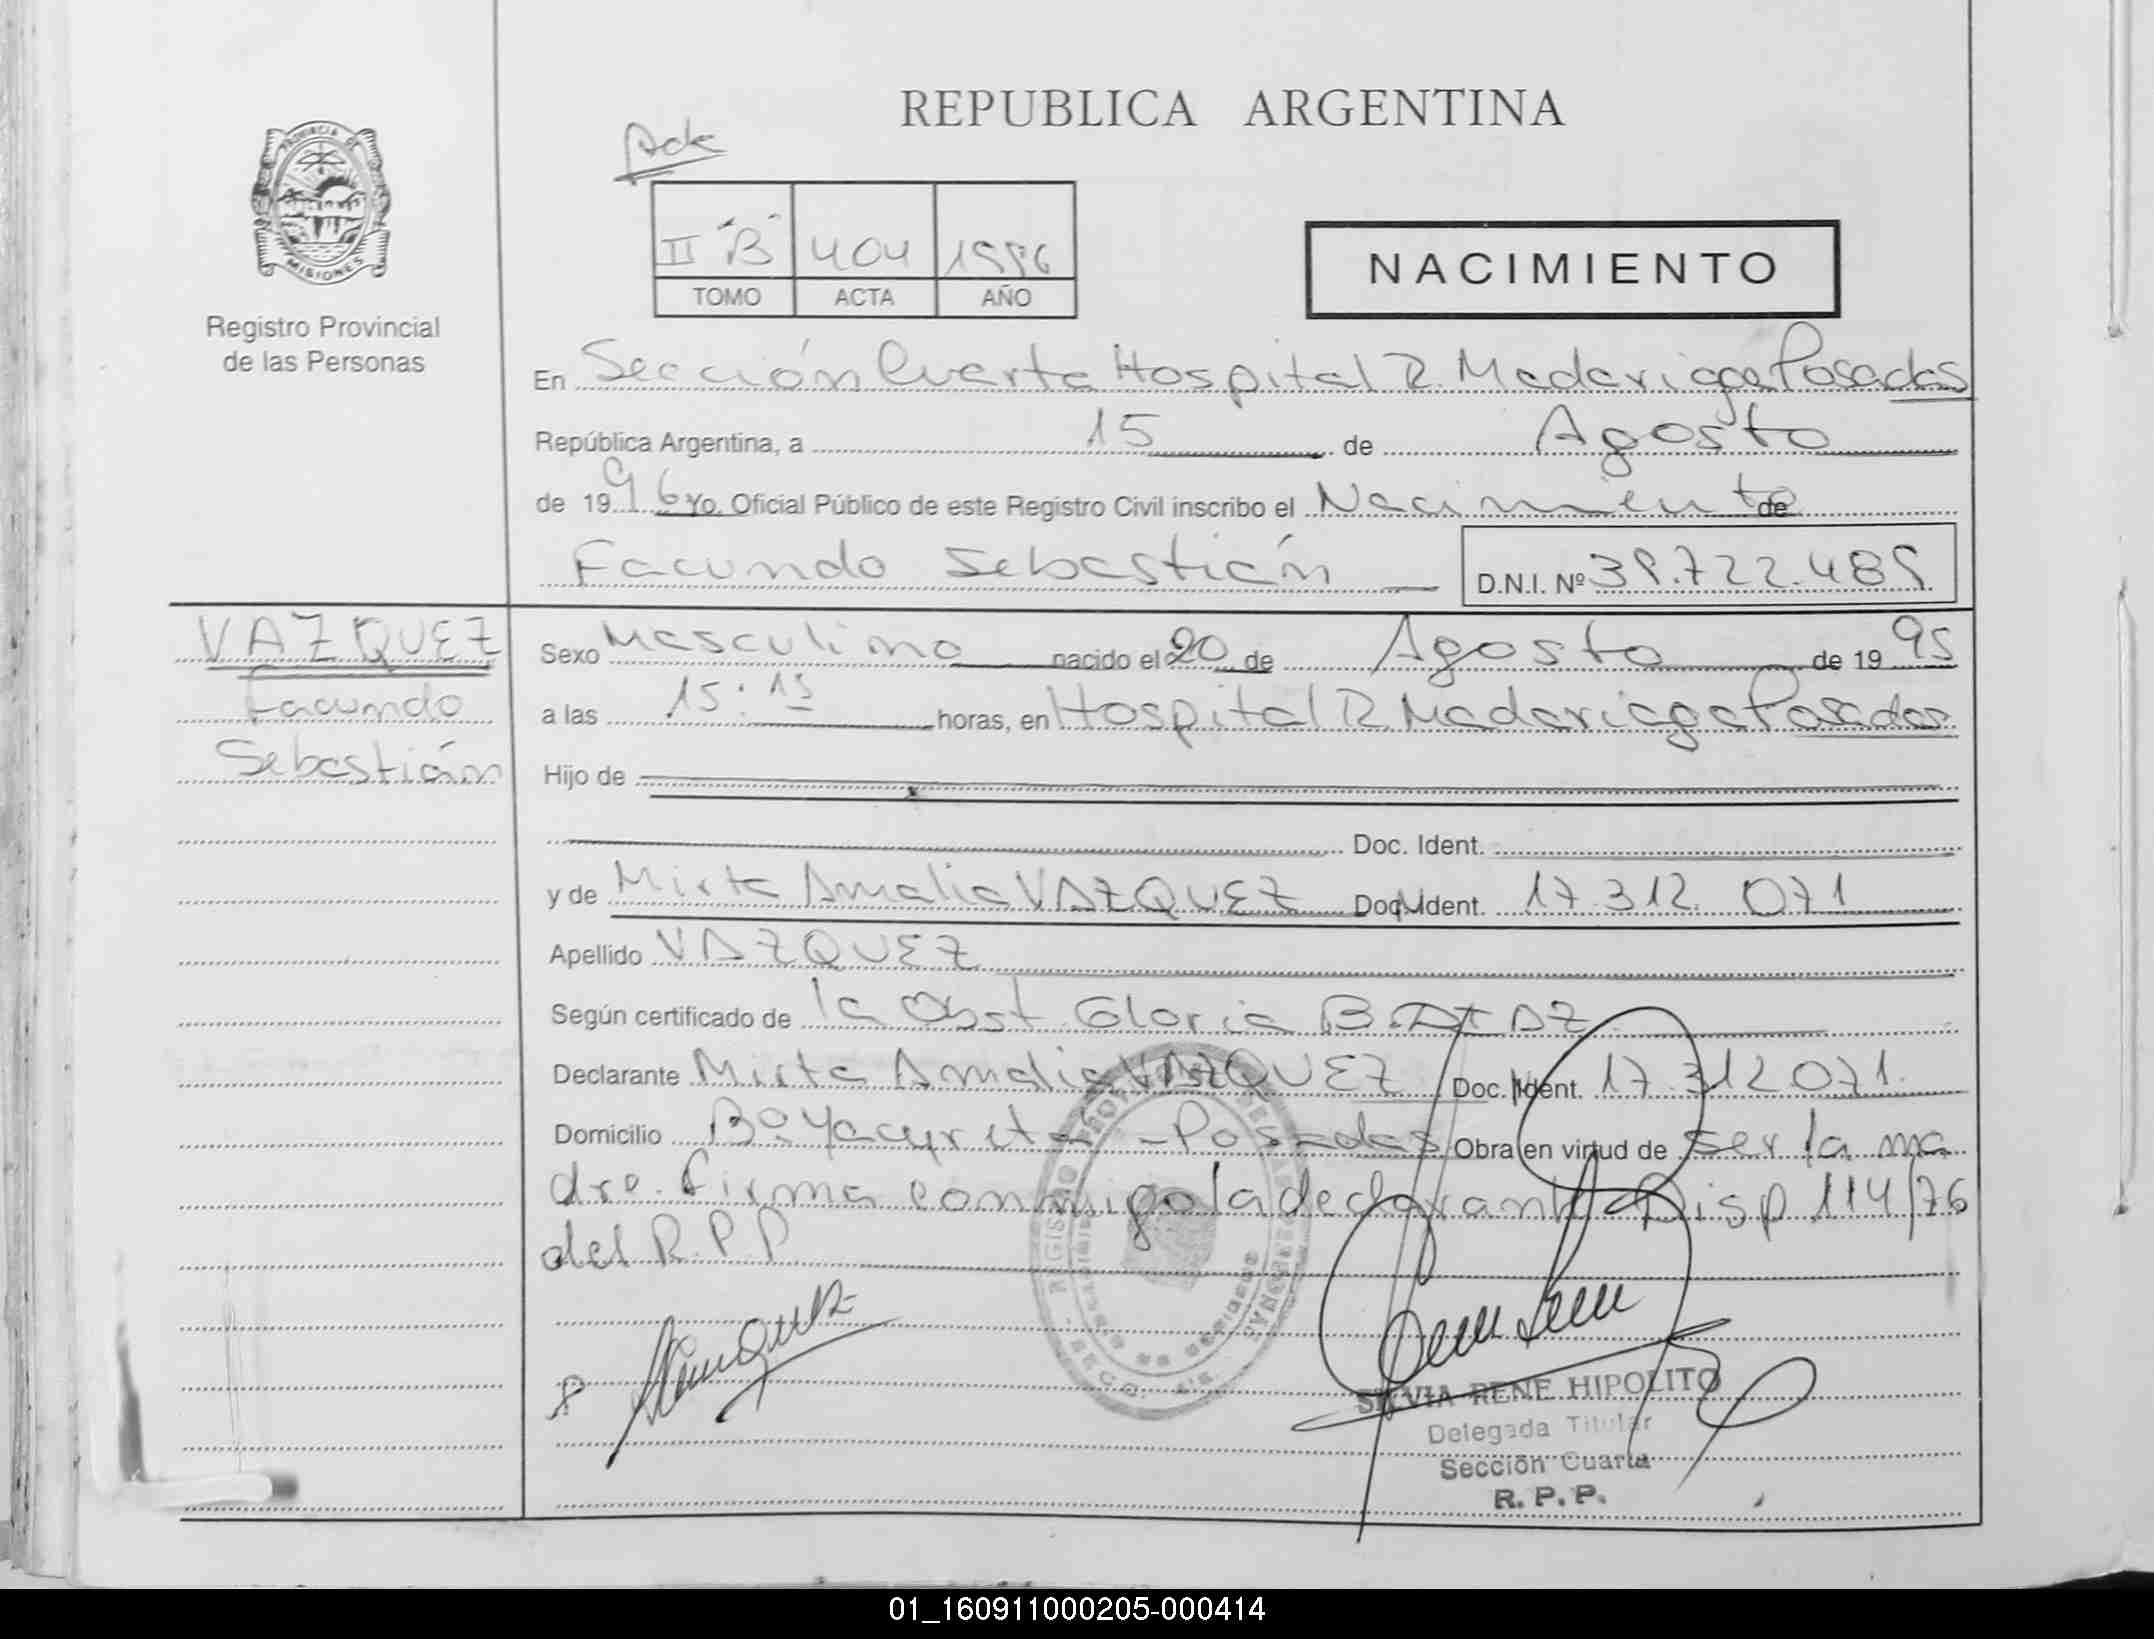 REPUBLICA ARGENTINA
PROVINCIA DE
MISIONES
Registro Provincial
de las Personas
II "B" 404 1996
TOMO ACTA AÑO
NACIMIENTO
En Sección Cuarta Hospital R. Madariaga Posadas
República Argentina, a 15 de Agosto
de 1996 Yo. Oficial Público de este Registro Civil inscribo el Nacimiento de
Facundo Sebastián D.N.I. Nº 39.722.489
VAZQUEZ
Facundo
Sebastián
Sexo Masculino nacido el 20 de Agosto de 1995
a las 15:15 horas, en Hospital R Madariaga Posadas
Hijo de
Doc. Ident.
y de Mirta Amalia VAZQUEZ Doc. Ident. 17.312.071
Apellido VAZQUEZ
Según certificado de la Obst. Gloria B. DIAZ
Declarante Mirta Amalia VAZQUEZ Doc. Ident. 17.312.071.
Domicilio Bº Yacyreta - Posadas Obra en virtud de ser la ma
dre. Firma conmigo la declarante Disp 114/76
del R.P.P.
SILVIA RENE HIPOLITO
Delegada Titular
Sección Cuarta
R. P. P.
01_160911000205-000414